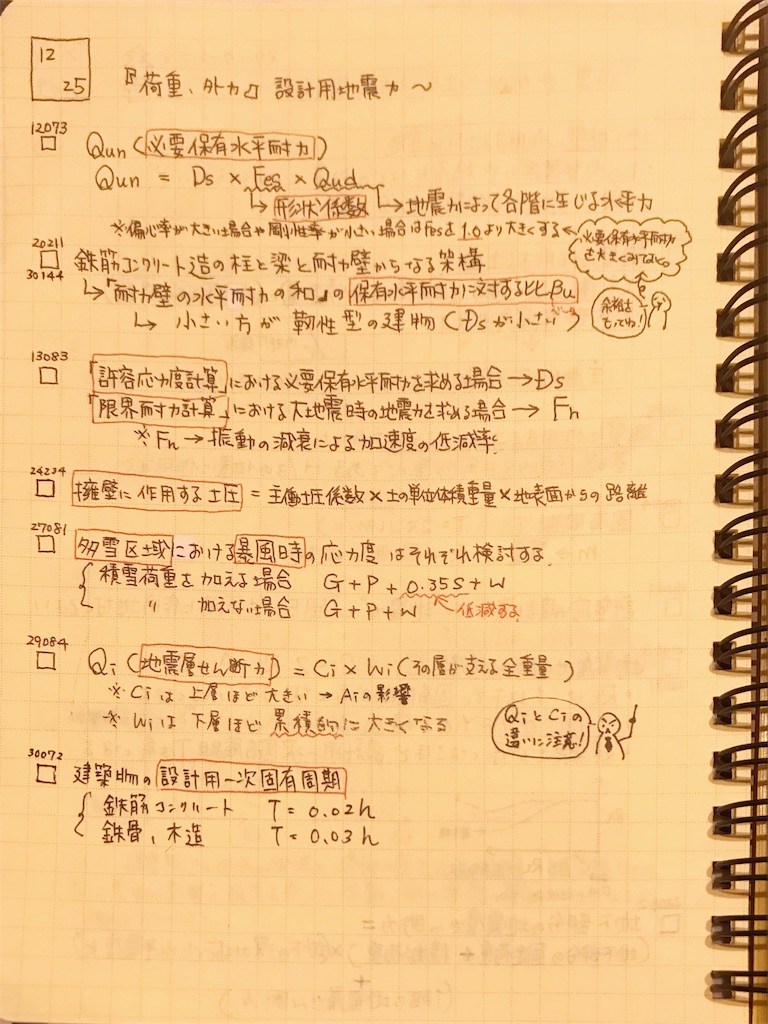 12
25
『荷重、外力』 設計用地震力 〜
12073
□ Qun (必要保有水平耐力)
Qun = Ds × Fes × Qud
↳ 形状係数 ↳ 地震力によって各階に生じる水平力
※偏心率が大きい場合や剛性率が小さい場合はFesを1.0より大きくする
必要保有水平耐力
を大きくみておく。
余裕を
もってね!
20211
30144
□ 鉄筋コンクリート造の柱と梁と耐力壁からなる架構
↳「耐力壁の水平耐力の和」の保有水平耐力に対する比βu
↳ 小さい方が靭性型の建物 (Dsが小さい)
13083
□ 「許容応力度計算」における必要保有水平耐力を求める場合 → Ds
「限界耐力計算」における大地震時の地震力を求める場合 → Fh
※ Fh → 振動の減衰による加速度の低減率.
24234
□ 擁壁に作用する土圧 = 主働土圧係数 × 土の単位体積重量 × 地表面からの距離
27081
□ 多雪区域における暴風時の応力度はそれぞれ検討する.
積雪荷重を加える場合 G + P + 0.35S + W
〃 加えない場合 G + P + W
低減する
29084
□ Qi (地震層せん断力) = Ci × Wi (その層が支える全重量)
※ Ciは上層ほど大きい → Aiの影響
※ Wiは下層ほど累積的に大きくなる
QiとCiの
違いに注意!
30072
□ 建築物の設計用一次固有周期
鉄筋コンクリート T = 0.02h
鉄骨、木造 T = 0.03h